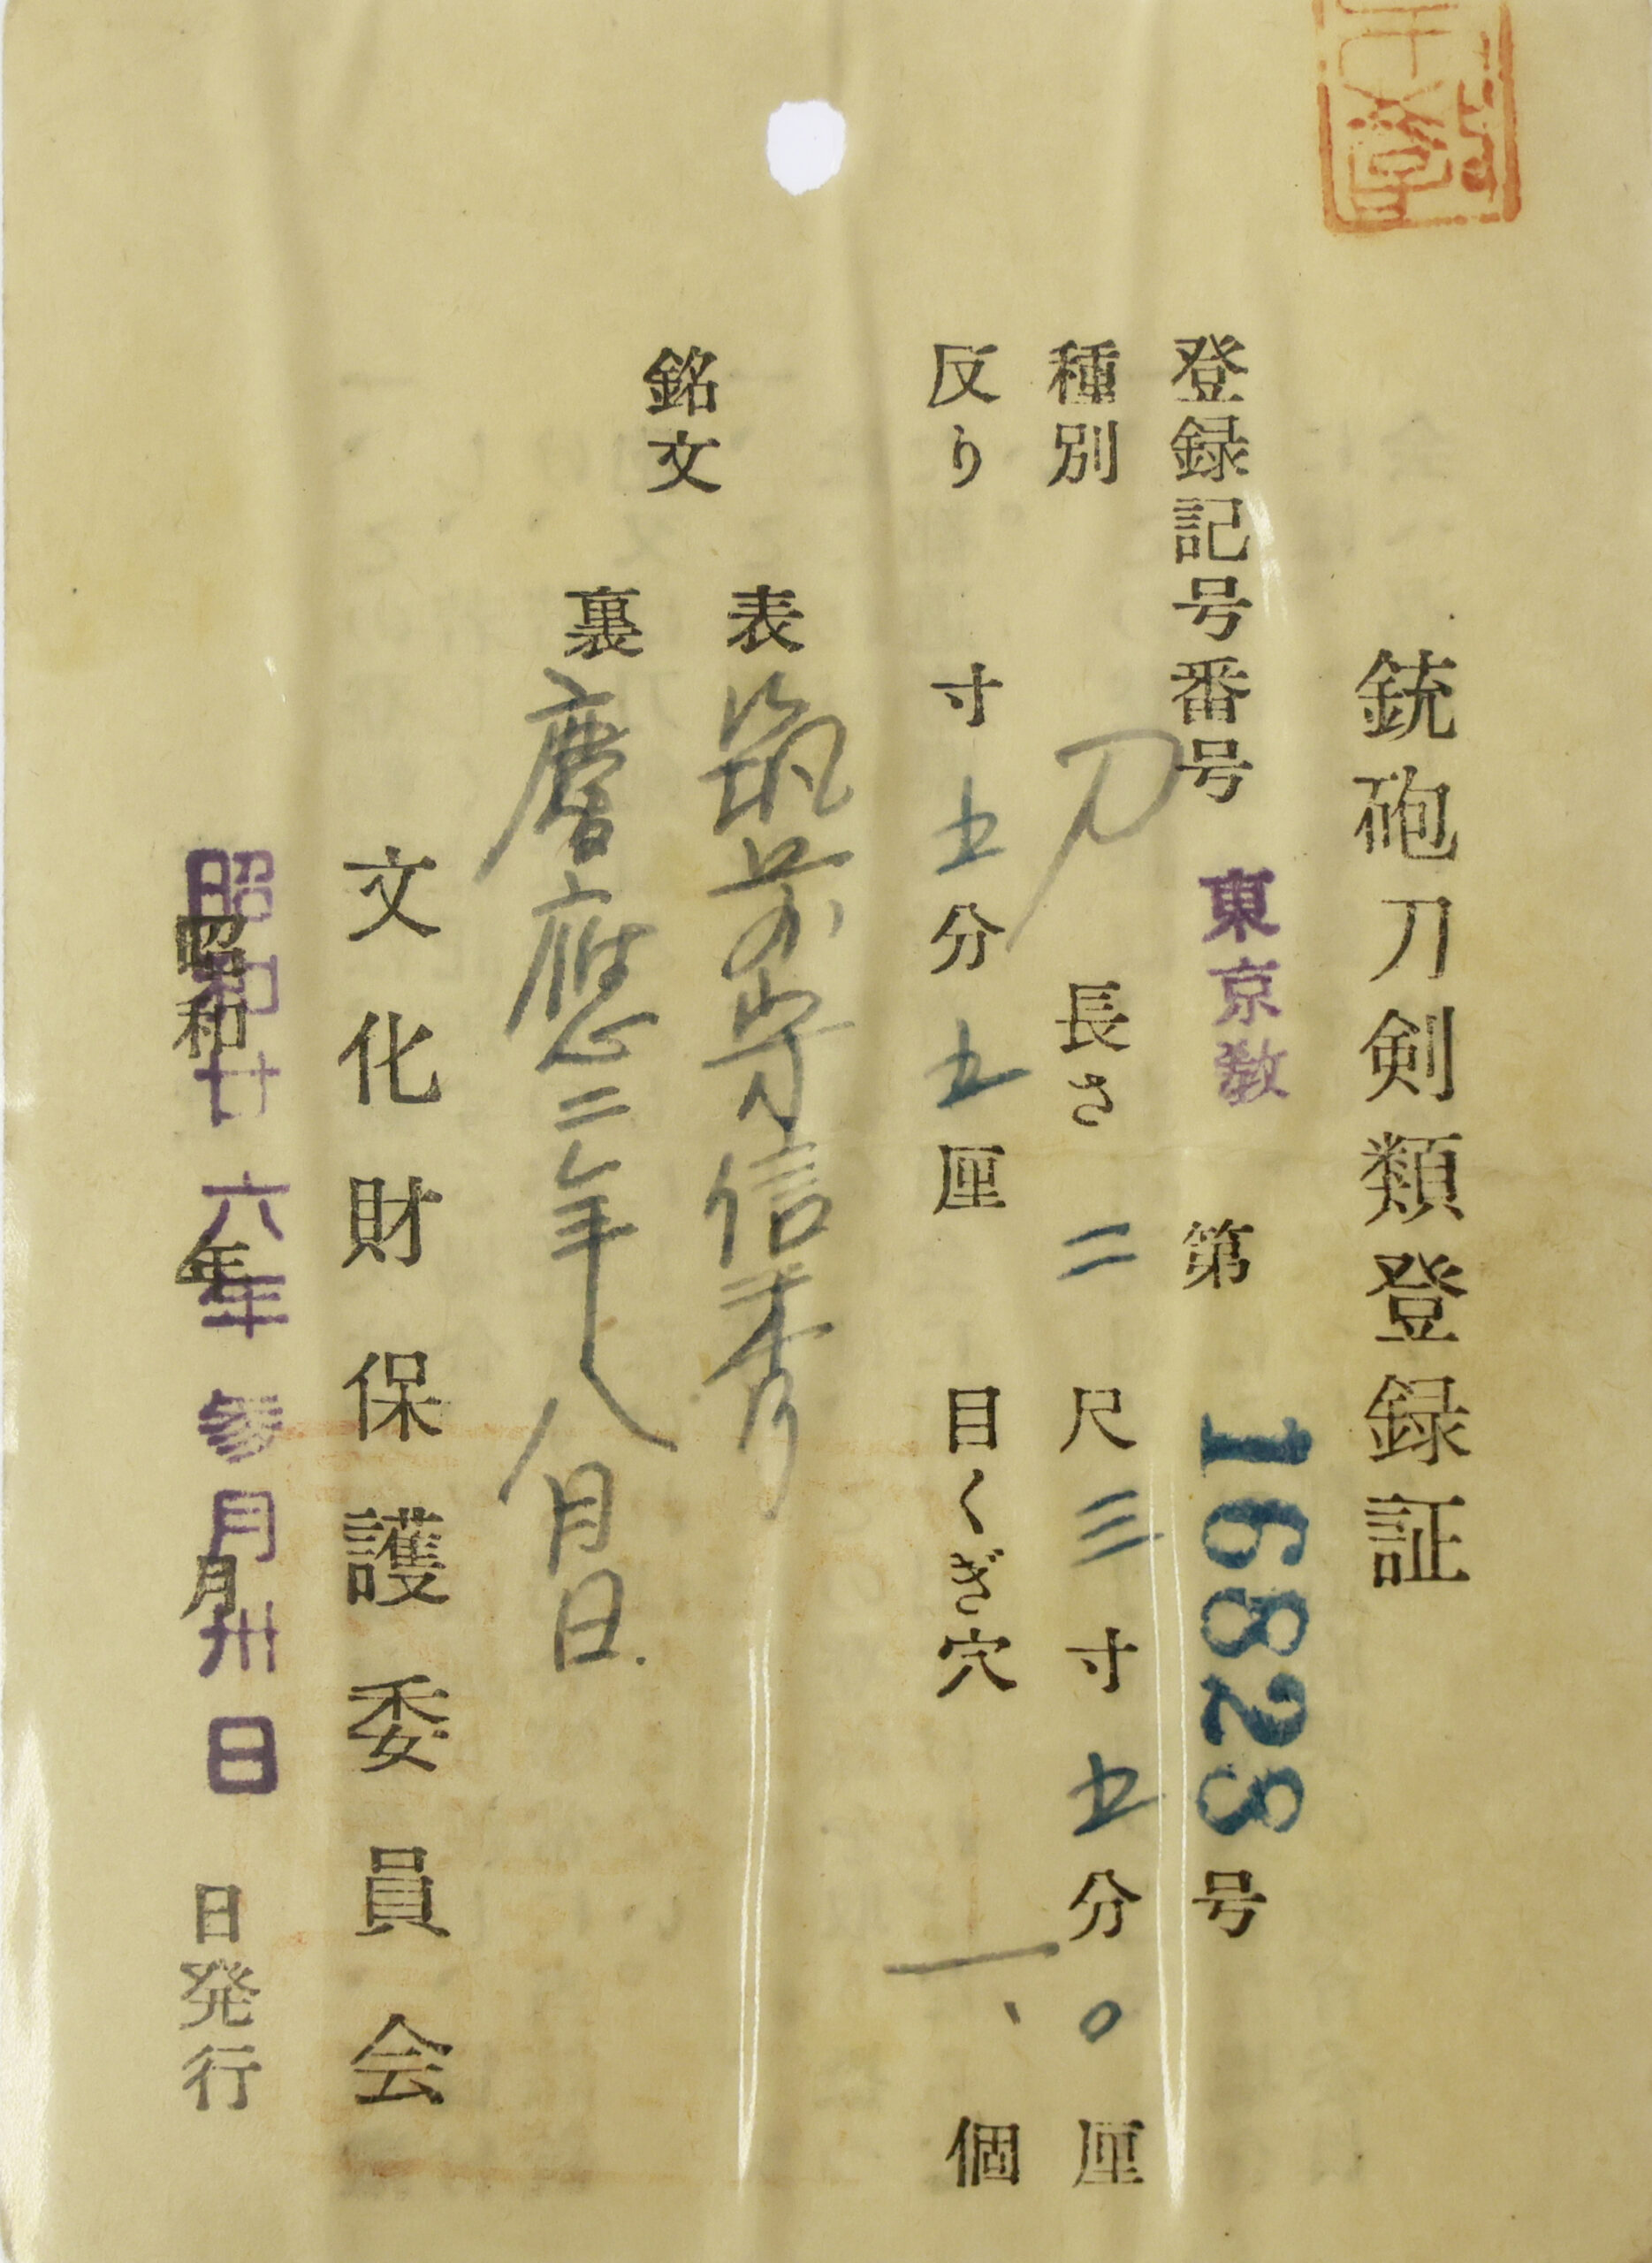 銃砲刀剣類登録証
登録記号番号 東京教 第 16828 号
種別 刀 長さ 二 尺 三 寸 五 分 〇 厘
反り 寸 五 分 五 厘 目くぎ穴 一 個
銘文
表 筑前守信秀
裏 慶應二年八月日
文化財保護委員会
昭和廿六年参月卅日
昭和 年 月 日発行